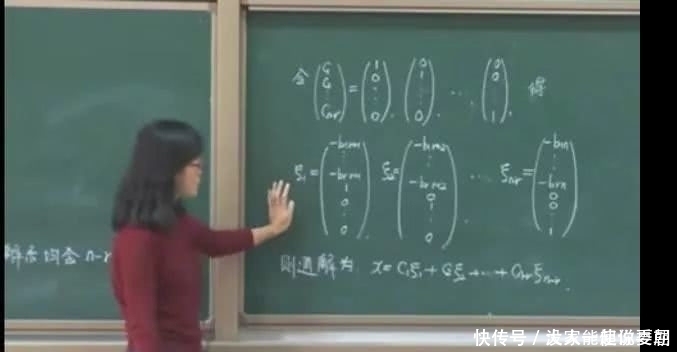 令 (C₁ C₂ ⋮ Cₙ₋ᵣ) = (1 0 ⋮ 0), (0 1 ⋮ 0), … (0 0 ⋮ 1), 得
ξ₁ = (-b₁ᵣ₊₁ ⋮ -bᵣᵣ₊₁ 1 0 ⋮ 0) ξ₂ = (-b₁ᵣ₊₂ ⋮ -bᵣᵣ₊₂ 0 1 ⋮ 0) … ξₙ₋ᵣ = (-b₁ₙ ⋮ -bᵣₙ 0 0 ⋮ 1)
则通解为 x = C₁ξ₁ + C₂ξ₂ + … + Cₙ₋ᵣξₙ₋ᵣ.
解系均含 n-r
快传号 /